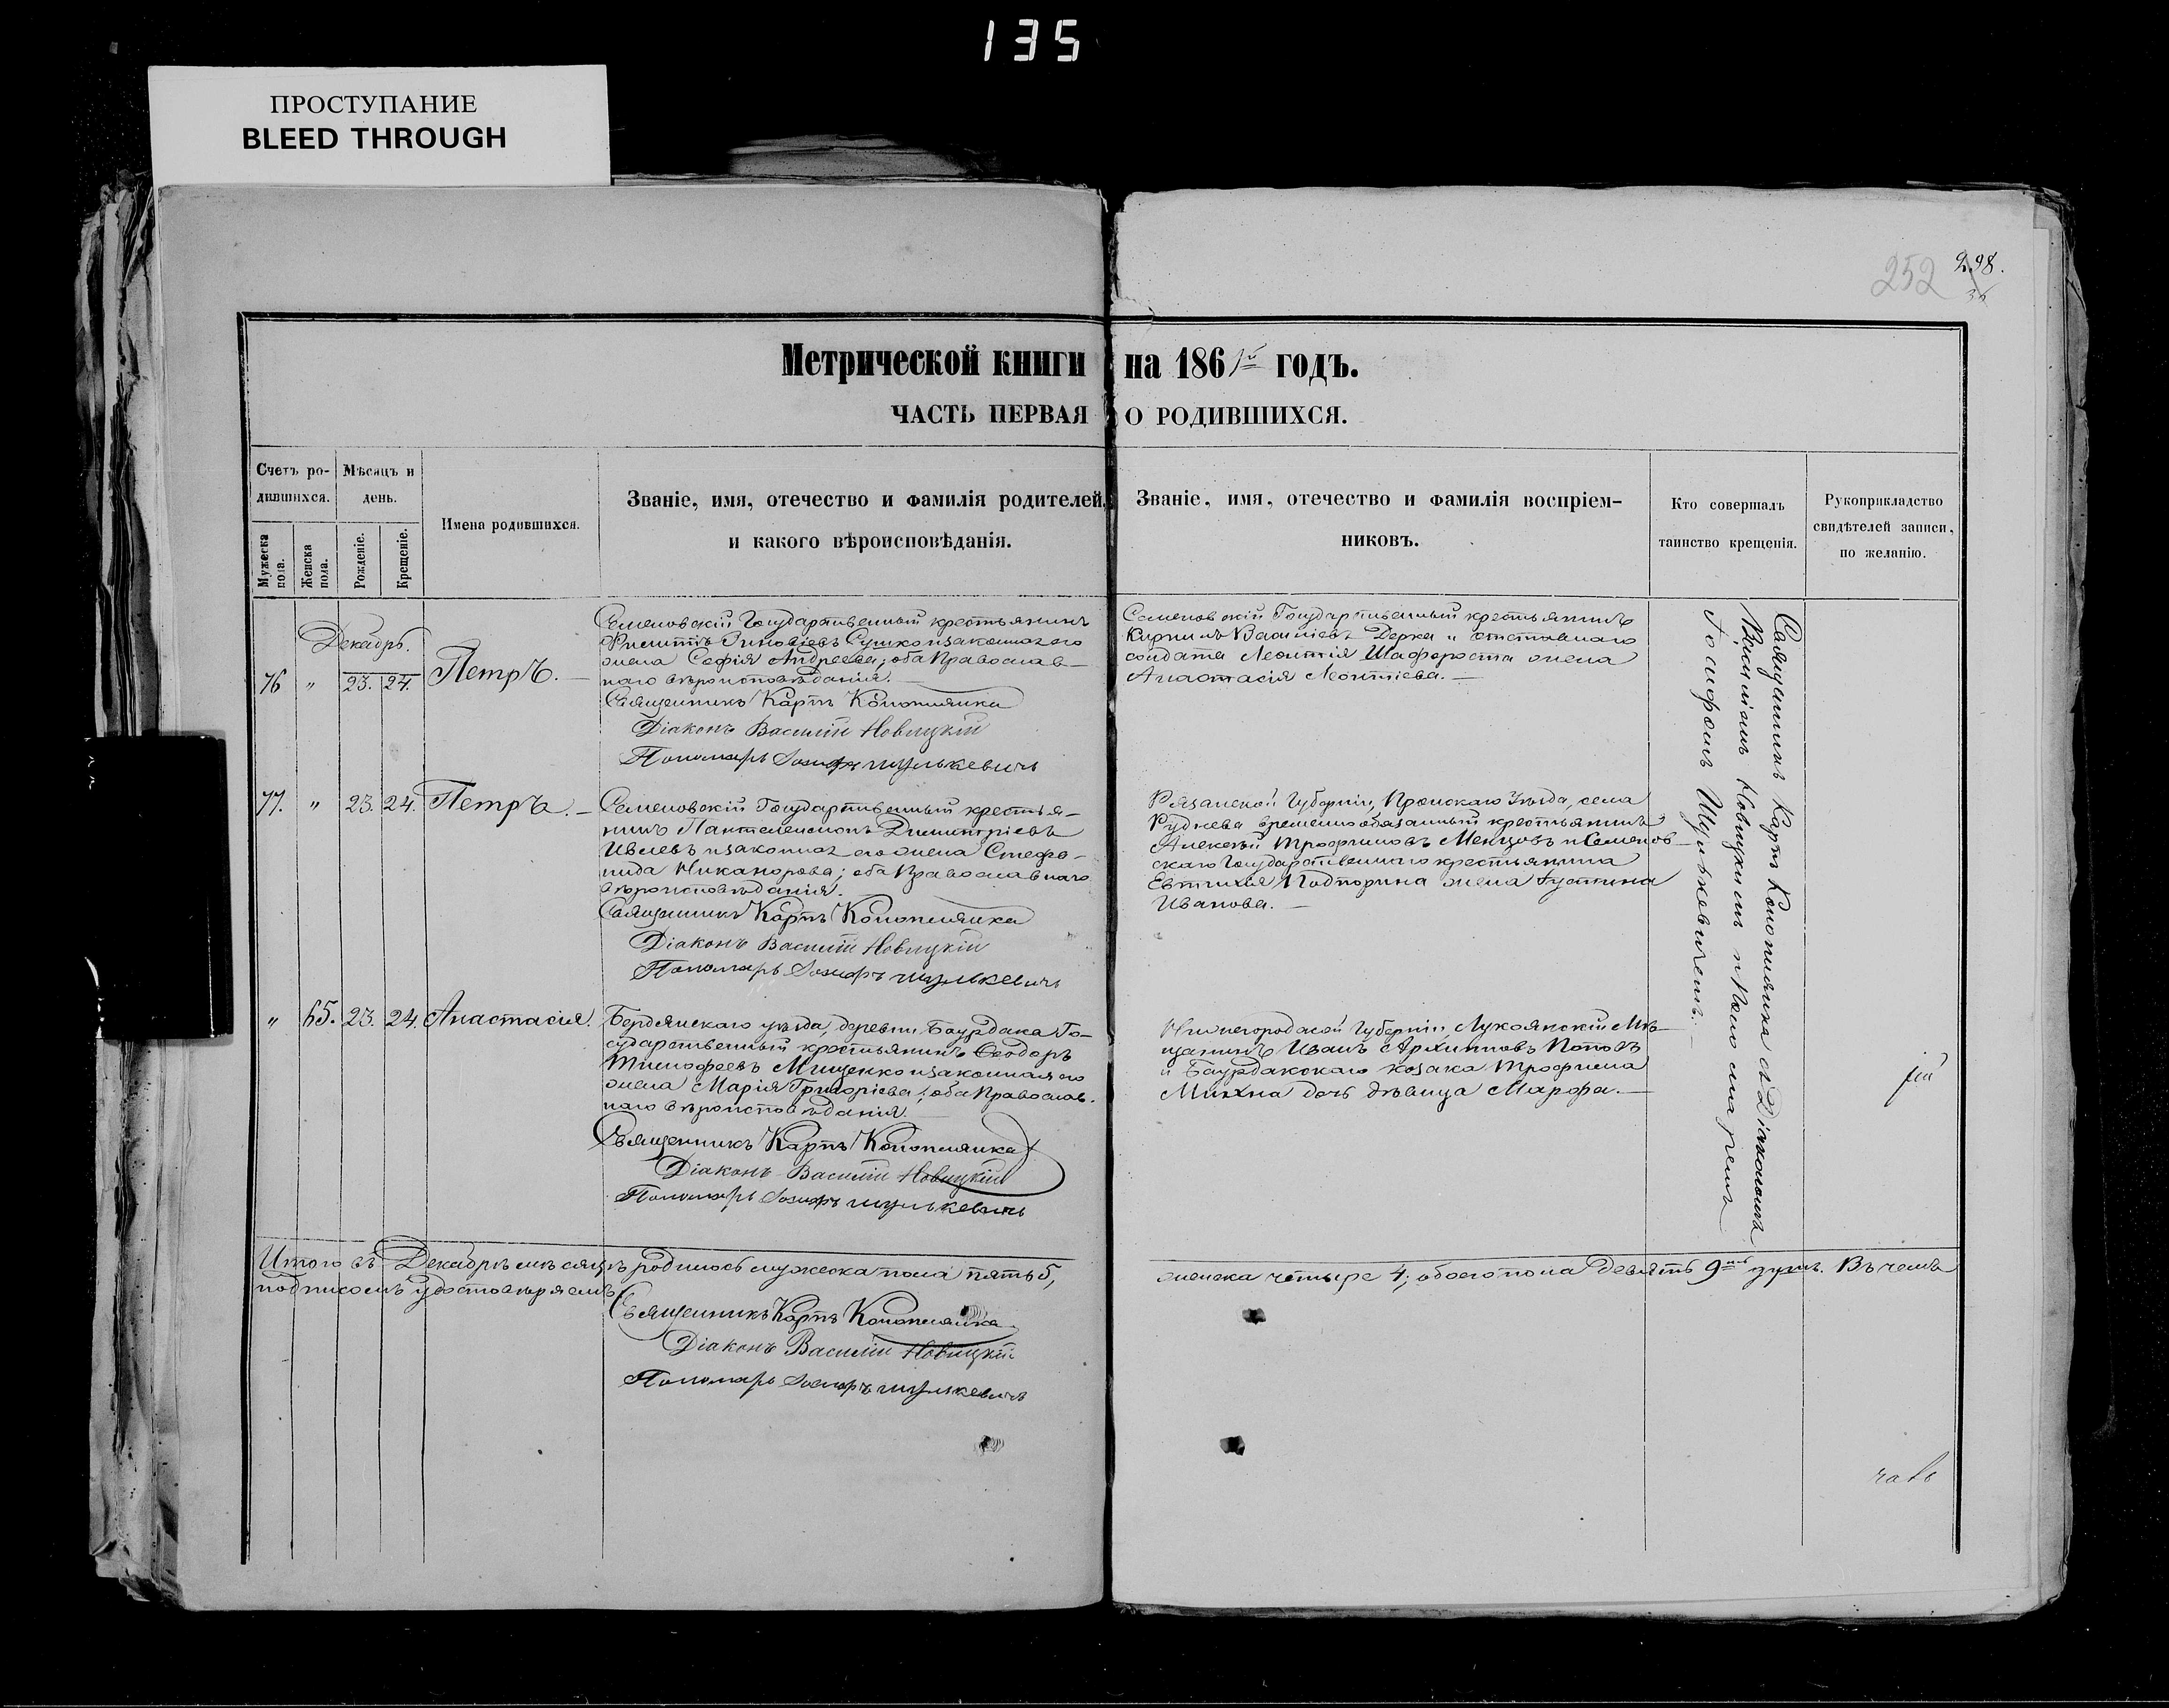 135
ПРОСТУПАНИЕ
BLEED THROUGH
252
298.
Метрической книги на 1861й годъ.
ЧАСТЬ ПЕРВАЯ О РОДИВШИХСЯ.
Счетъ ро-
дившихся.
Мужеска пола.
Женска пола.
Мѣсяцъ и
день.
Рожденіе.
Крещеніе.
Имена родившихся.
Званіе, имя, отечество и фамилія родителей,
и какого вѣроисповѣданія.
Званіе, имя, отечество и фамилія воспріем-
никовъ.
Кто совершалъ
таинство крещенія.
Рукоприкладство
свидѣтелей записи,
по желанію.
Декабрь.
76 " 23. 24. Петръ.
Семеновскій Государственный крестьянинъ
Филиппъ Зиновіевъ Сушко и законная его
жена Софія Андреева; оба Православ-
наго вѣроисповѣданія.
Священникъ Карпъ Конопмянка
Діаконъ Василій Новицкій
Пономарь Іосифъ Шулькевичъ
Семеновскій Государственный крестьянинъ
Кирилъ Василіевъ Дерка и отставнаго
солдата Леонтія Шафороста жена
Анастасія Леонтіева.
77. " 23. 24. Петръ.
Семеновскій Государственный крестья-
нинъ Пантелеимонъ Димитріевъ
Ивлевъ и законная его жена Стефа-
нида Никанорова; оба Православнаго
вѣроисповѣданія.
Священникъ Карпъ Конопмянка
Діаконъ Василій Новицкій
Пономарь Іосифъ Шулькевичъ
Рязанской Губерніи, Пронскаго Уѣзда, села
Руднева временнообязанный крестьянинъ
Алексѣй Трофимовъ Менцовъ и Семенов-
скаго Государственнаго крестьянина
Евтихія Подпорина жена Іустина
Иванова.
" 65. 23. 24. Анастасія.
Бердянскаго уѣзда, деревни Баурдака Го-
сударственный крестьянинъ Ѳеодоръ
Тимофеевъ Мищенко и законная его
жена Марія Григоріева; оба Православ-
наго вѣроисповѣданія.
Священникъ Карпъ Конопмянка
Діаконъ Василій Новицкій
Пономарь Іосифъ Шулькевичъ
Нижегородской Губерніи Лукоянскій Мѣ-
щанинъ Иванъ Архиповъ Поповъ
и Баурдакскаго козака Трофима
Михна дочь дѣвица Марфа.
Священникъ Карпъ Конопмянка съ Діакономъ
Василіемъ Новицкимъ и Пономаремъ
Іосифомъ Шулькевичемъ.
Итого въ Декабрѣ мѣсяцѣ родилось мужеска пола пять 5, женска четыре 4; обоего пола девять 9ть душъ. Въ чемъ
подписомъ удостовѣряемъ:
Священникъ Карпъ Конопмянка
Діаконъ Василій Новицкій
Пономарь Іосифъ Шулькевичъ